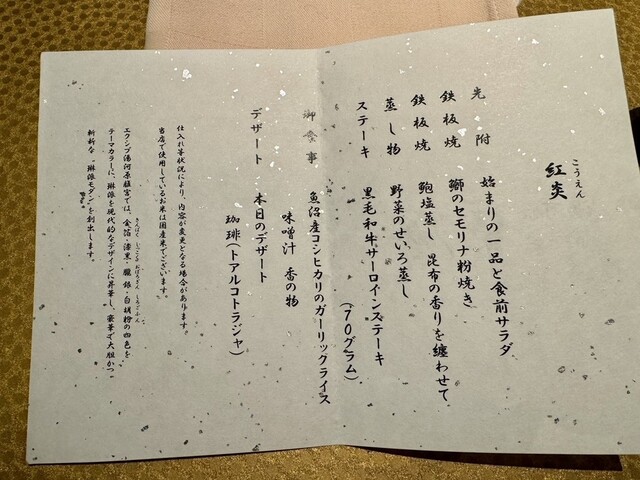 こうえん
紅炎
先附 始まりの一品と食前サラダ
鉄板焼 鰤のセモリナ粉焼き
鉄板焼 鮑塩蒸し 昆布の香りを纏わせて
蒸し物 野菜のせいろ蒸し
ステーキ 黒毛和牛サーロインステーキ
(70グラム)
御食事 魚沼産コシヒカリのガーリックライス
味噌汁 香の物
デザート 本日のデザート
珈琲(トアルコトラジャ)
仕入れ等状況により、内容が変更となる場合があります。
当店で使用しているお米は国産米でございます。
エクシブ湯河原離宮では、金箔・漆黒・朧銀・白胡粉の四色を
テーマカラーに、琳派を現代的なデザインに昇華し、豪華で大胆かつ
斬新な“琳派モダン”を創出します。